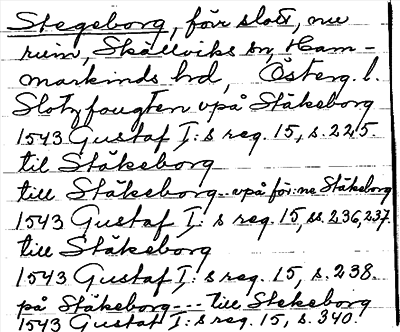 Stegeborg, förr slott, nu
ruin, Skällviks sn, Ham-
markinds hd, Österg. l.
Slotzfougten vpå Ståkeborg
1543 Gustaf I:s reg. 15, s. 225.
til Ståkeborg
till Ståkeborg - - vpå för:ne Ståkeborg
1543 Gustaf I:s reg. 15, ss. 236, 237.
till Ståkeborg
1543 Gustaf I:s reg. 15, s. 238.
på Ståkeborg - - - till Stekeborg
1543 Gustaf I:s reg. 15, s. 340.